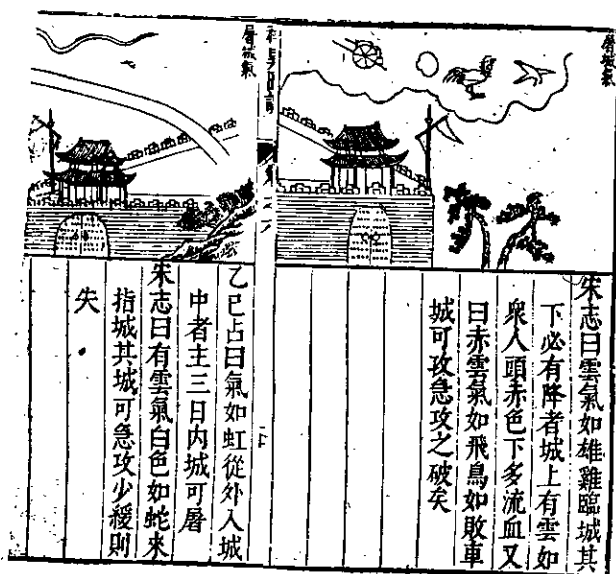 屠城氣
宋志曰雲氣如雄雞臨城其
下必有降者城上有雲如
衆人頭赤色下多流血又
曰赤雲氣如飛鳥如敗車
城可攻急攻之破矣
屠城氣
乙巳占曰氣如虹從外入城
中者主三日内城可屠
宋志曰有雲氣白色如蛇来
指城其城可急攻少緩則
失